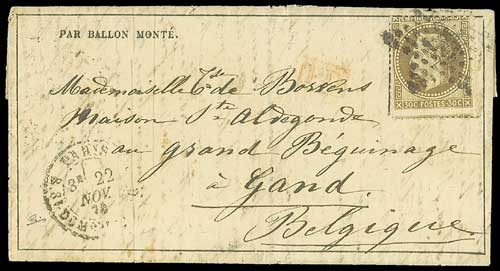 PAR BALLON MONTÉ.
Mademoiselle Tse de Bossens
Maison Ste Aldegonde
au grand Béguinage
à Gand.
Belgique.
30C POSTES 30C
PARIS
3E 22
NOV.
70